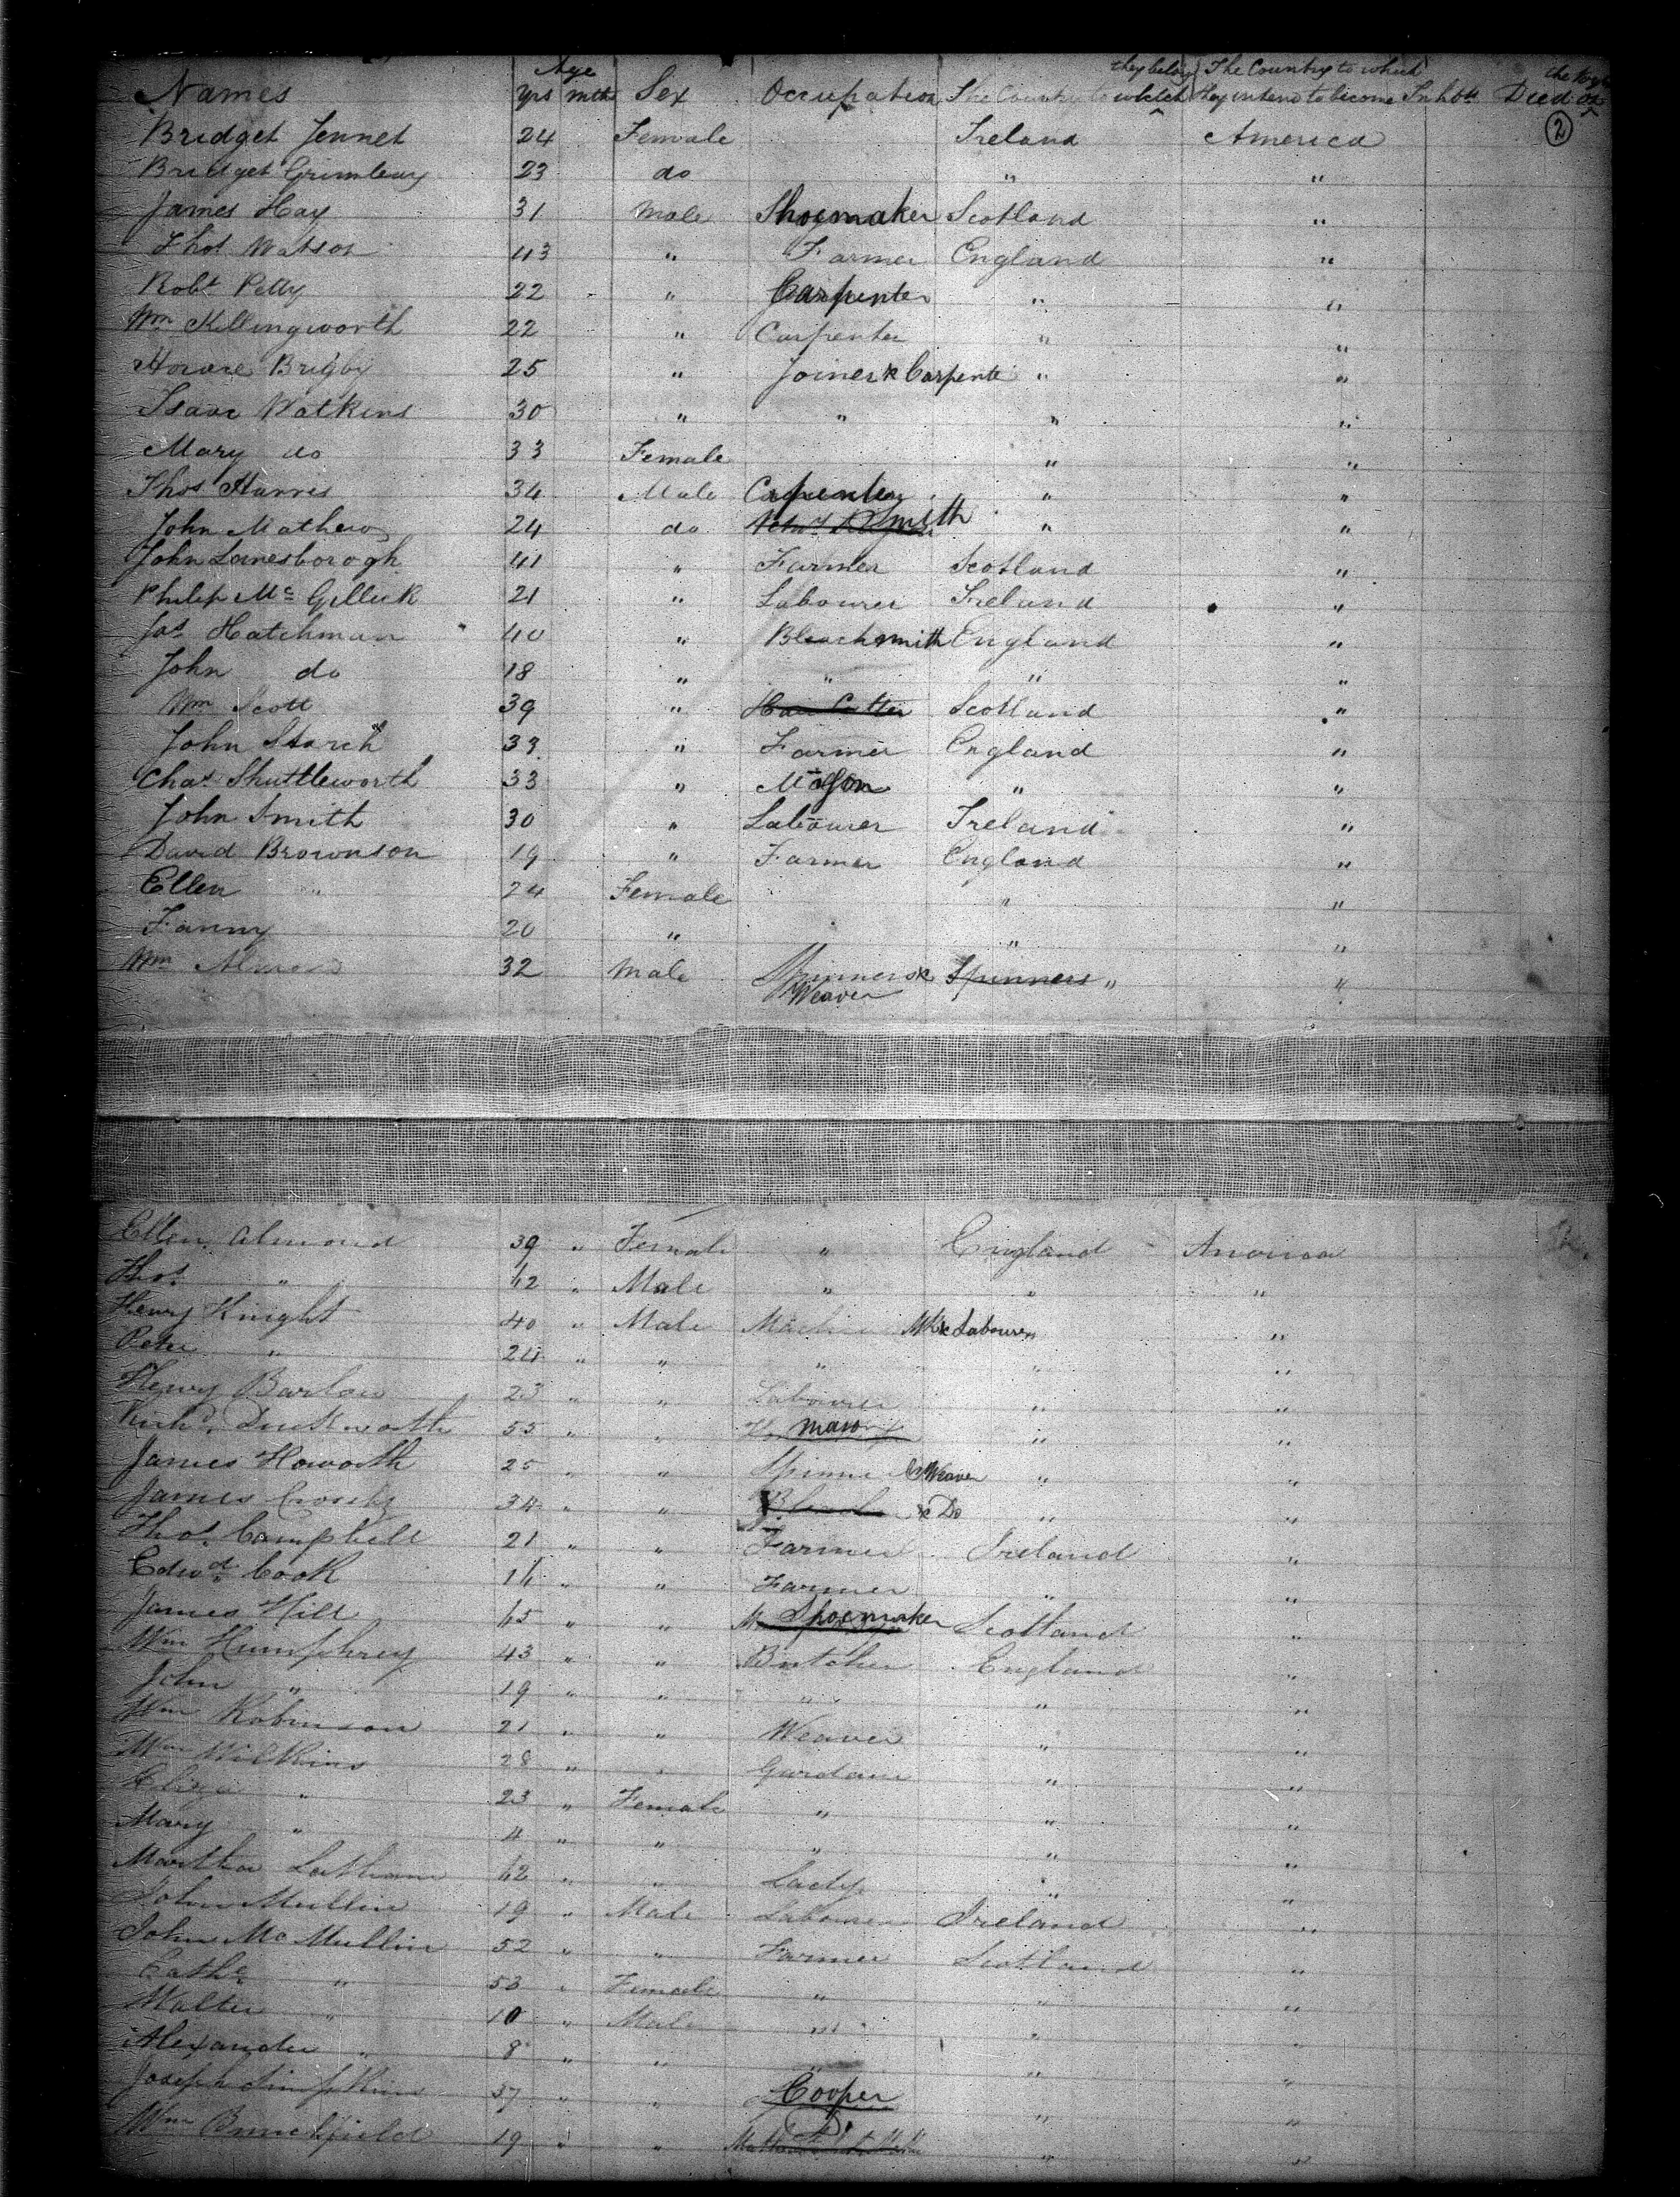 Names Age yrs mths Sex Occupation The Country to which they belong The Country to which they intend to become Inhbts Died on the
2
Bridget Jennet 24 Female Ireland America
Bridget 23 do " "
James Hay 31 Male Shoemaker Scotland "
Thos Watson 43 " Farmer England "
Robt Petty 22 " Carpenter " "
Wm Killingworth 22 " Carpenter " "
Horace Brigby 25 " Joiner & Carpente " "
Isaac Watkins 30 " " " "
Mary do 33 Female " "
Thos Harris 34 Male Carpenter " "
John Mathews 24 do Smith " "
John Lanesborogh 41 " Farmer Scotland "
Philip Mc Gelleck 21 " Labourer Ireland "
Jas Hatchman 40 " Blacksmith England "
John do 18 " " " "
Wm Scott 39 " Hair Cutter Scotland "
John Storch 33 " Farmer England "
Chas Shuttleworth 33 " Mason " "
John Smith 30 " Labourer Ireland "
David Brownson 19 " Farmer England "
Ellen " 24 Female " "
Fanny 20 " " "
Wm 32 Male Spinners & Weaver Spinners " "
Ellen Almond 39 " Female " England America
Thos " 12 " Male " " "
Henry Knight 40 " Male Machine Mk & Labourer " "
Peter " 24 " " " " "
Henry Barlow 23 " " Labourer " "
Richd Duckworth 55 " " " "
James Howorth 25 " " Spinner & Weaver " "
James Crosby 34 " " & Do " "
Thos Campbell 21 " " Farmer Ireland "
Edwd Cook 16 " " Farmer " "
James Hill 45 " " Shoemaker Scotland "
Wm Humphrey 43 " " Butcher England "
John " 19 " " " " "
Wm Robinson 21 " " Weaver " "
Wm Wilkins 28 " " " "
Eliza " 23 " Female " " "
Mary " 4 " " " " "
Martha Latham 42 " " Lady " "
John Mullin 19 " Male Labourer Ireland "
John Mc Mullin 52 " " Farmer Scotland "
Cathe " 53 " Female " " "
Walter " 10 " Male " " "
Alexander " 8 " " " " "
Joseph Simpkins 37 " " Cooper " "
Wm 19 " " " "